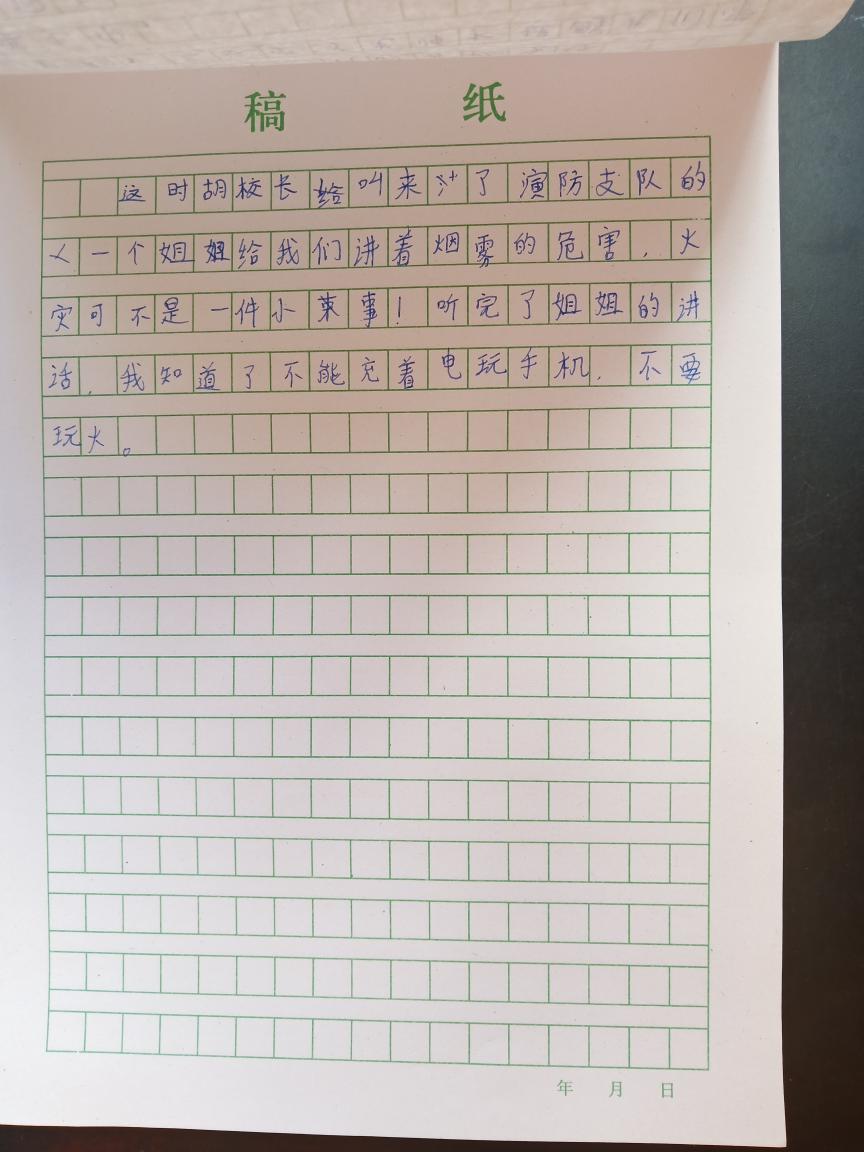 稿 纸
这时胡校长给叫来了演防支队的
一个姐姐给我们讲着烟雾的危害，火
灾可不是一件小事！听完了姐姐的讲
话，我知道了不能充着电玩手机，不要
玩火。
年 月 日